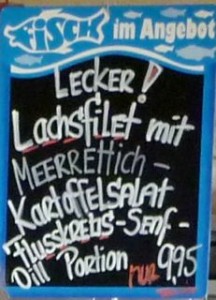 Fisch im Angebot
LECKER!
Lachsfilet mit
MEERRETTICH-
KARTOFFELSALAT
Flusskrebs-Senf-
Dill Portion nur 9,95